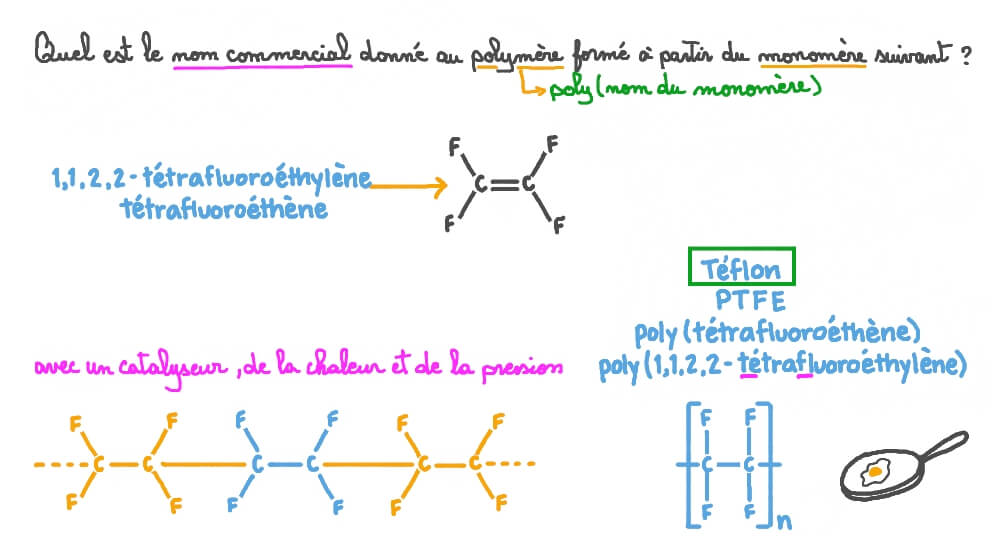 Quel est le nom commercial donné au polymère formé à partir du monomère suivant ?
poly (nom du monomère)
1,1,2,2-tétrafluoroéthylène
tétrafluoroéthène
F F
C=C
F F
Téflon
PTFE
poly (tétrafluoroéthène)
poly (1,1,2,2-tétrafluoroéthylène)
avec un catalyseur, de la chaleur et de la pression
F F F F F F
C C C C C C
F F F F F F
F F
C C
F F
n